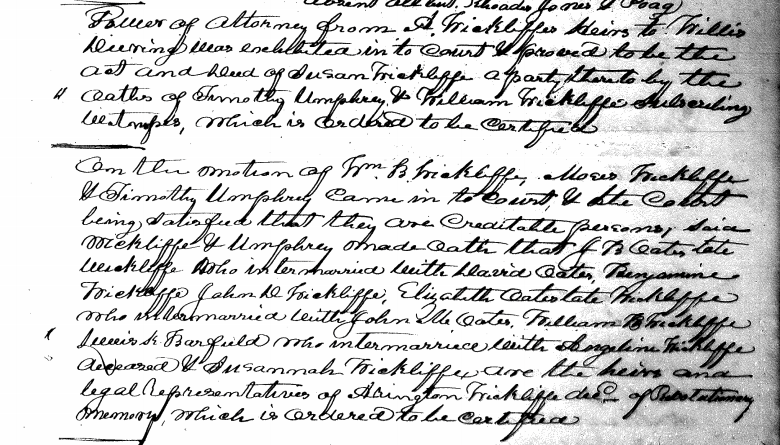 absent all but. Rhoads Jones & Poag
Power of Attorney from A. Wickliffes Heirs to Willis
During was exhibited in to Court & proved to be the
act and deed of Susan Wickliffe a party thereto by the
Oaths of Timothy Umphrey & William Wickliffe subscribing
Witnesses, which is ordered to be certified
On the motion of Wm B. Wickliffe, Moses Wickliffe
& Timothy Umphrey came in to Court, & the Court
being satisfied that they are Creditable persons, said
Wickliffe & Umphrey made oath that J B Oates late
Wickliffe who intermarried with David Oates, Benjamine
Wickliffe John D Wickliffe, Elizabeth Oates late Wickliffe
who intermarried with John Oates, William B Wickliffe
Lewis K. Barfield who intermarried with Angeline Wickliffe
deceased & Susannah Wickliffe, are the heirs and
legal Representatives of Arington Wickliffe decd. of Revolutionary
memory, which is ordered to be certified